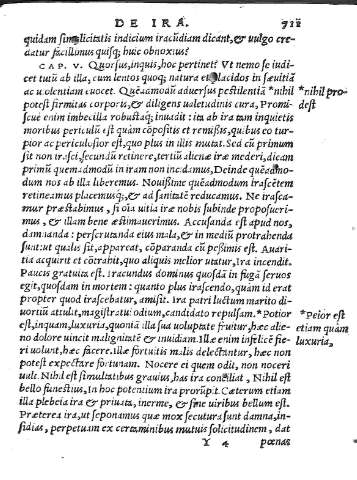 DE IRA. 712
quidam simplicitatis indicium iracũdiam dicant, & uulgo cre-
datur facillimus quisq; huic obnoxius?
CAP. V. Quorsus, inquis, hoc pertinet? Vt nemo se iudi-
cet tutũ ab illa, cum lentos quoq; natura et placidos in sæuitiã
ac uiolentiam euocet. Quẽadmodũ aduersus pestilentiã *nihil
potest firmitas corporis, & diligens ualetudinis cura, Promi-
scue enim imbecilla robustaq; inuadit: ita ab ira tam inquietis
moribus periculũ est quàm cõpositis et remissis, quibus eo tur-
pior ac periculosior est, quo plus in illis mutat. Sed cũ primum
sit non irasci, secundũ retinere, tertiũ alienæ iræ mederi, dicam
primũ quemadmodũ in iram non incidamus, Deinde quẽadmo-
dum nos ab illa liberemus. Nouissime quẽadmodum irascẽtem
retineamus placemusq;, & ad sanitatẽ reducamus. Ne irasca-
mur præstabimus, si oĩa uitia iræ nobis subinde proposueri-
mus, & illam bene æstimauerimus. Accusanda est apud nos,
damnanda: perscrutanda eius mala, & in mediũ protrahenda
sunt: ut qualis sit, appareat, cõparanda cũ pessimis est. Auari-
tia acquirit et cõtrahit, quo aliquis melior utatur, Ira incendit.
Paucis gratuita est. Iracundus dominus quosdã in fugã seruos
egit, quosdam in mortem: quanto plus irascendo, quàm id erat
propter quod irascebatur, amisit. Ira patri luctum marito di-
uortiũ attulit, magistratui odium, candidato repulsam. *Potior
est, inquam, luxuria, quoniã illa sua uoluptate fruitur, hæc alie-
no dolore uincit malignitatẽ & inuidiam. Illæ enim infelicẽ fie-
ri uolunt, hæc facere. illæ fortuitis malis delectantur, hæc non
potest expectare fortunam. Nocere ei quem odit, non noceri
uult. Nihil est simultatibus grauius, has ira conciliat, Nihil est
bello funestius, In hoc potentium ira prorũpit. Cæterum etiam
illa plebeia ira & priuata, inerme, & sine uiribus bellum est.
Præterea ira, ut seponamus quæ mox secutura sunt damna, in-
sidias, perpetuam ex certaminibus mutuis solicitudinem, dat
Y 4 pœnas
*nihil pro-
dest
*Peior est
etiam quàm
luxuria,